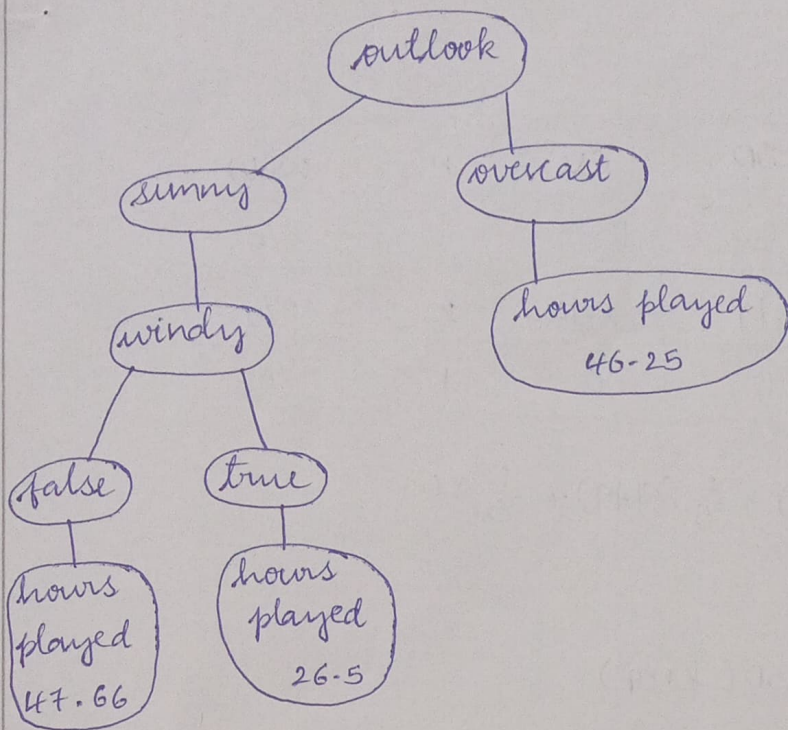 outlook
sunny
overcast
windy
hours played
46-25
false
true
hours
played
47.66
hours
played
26-5